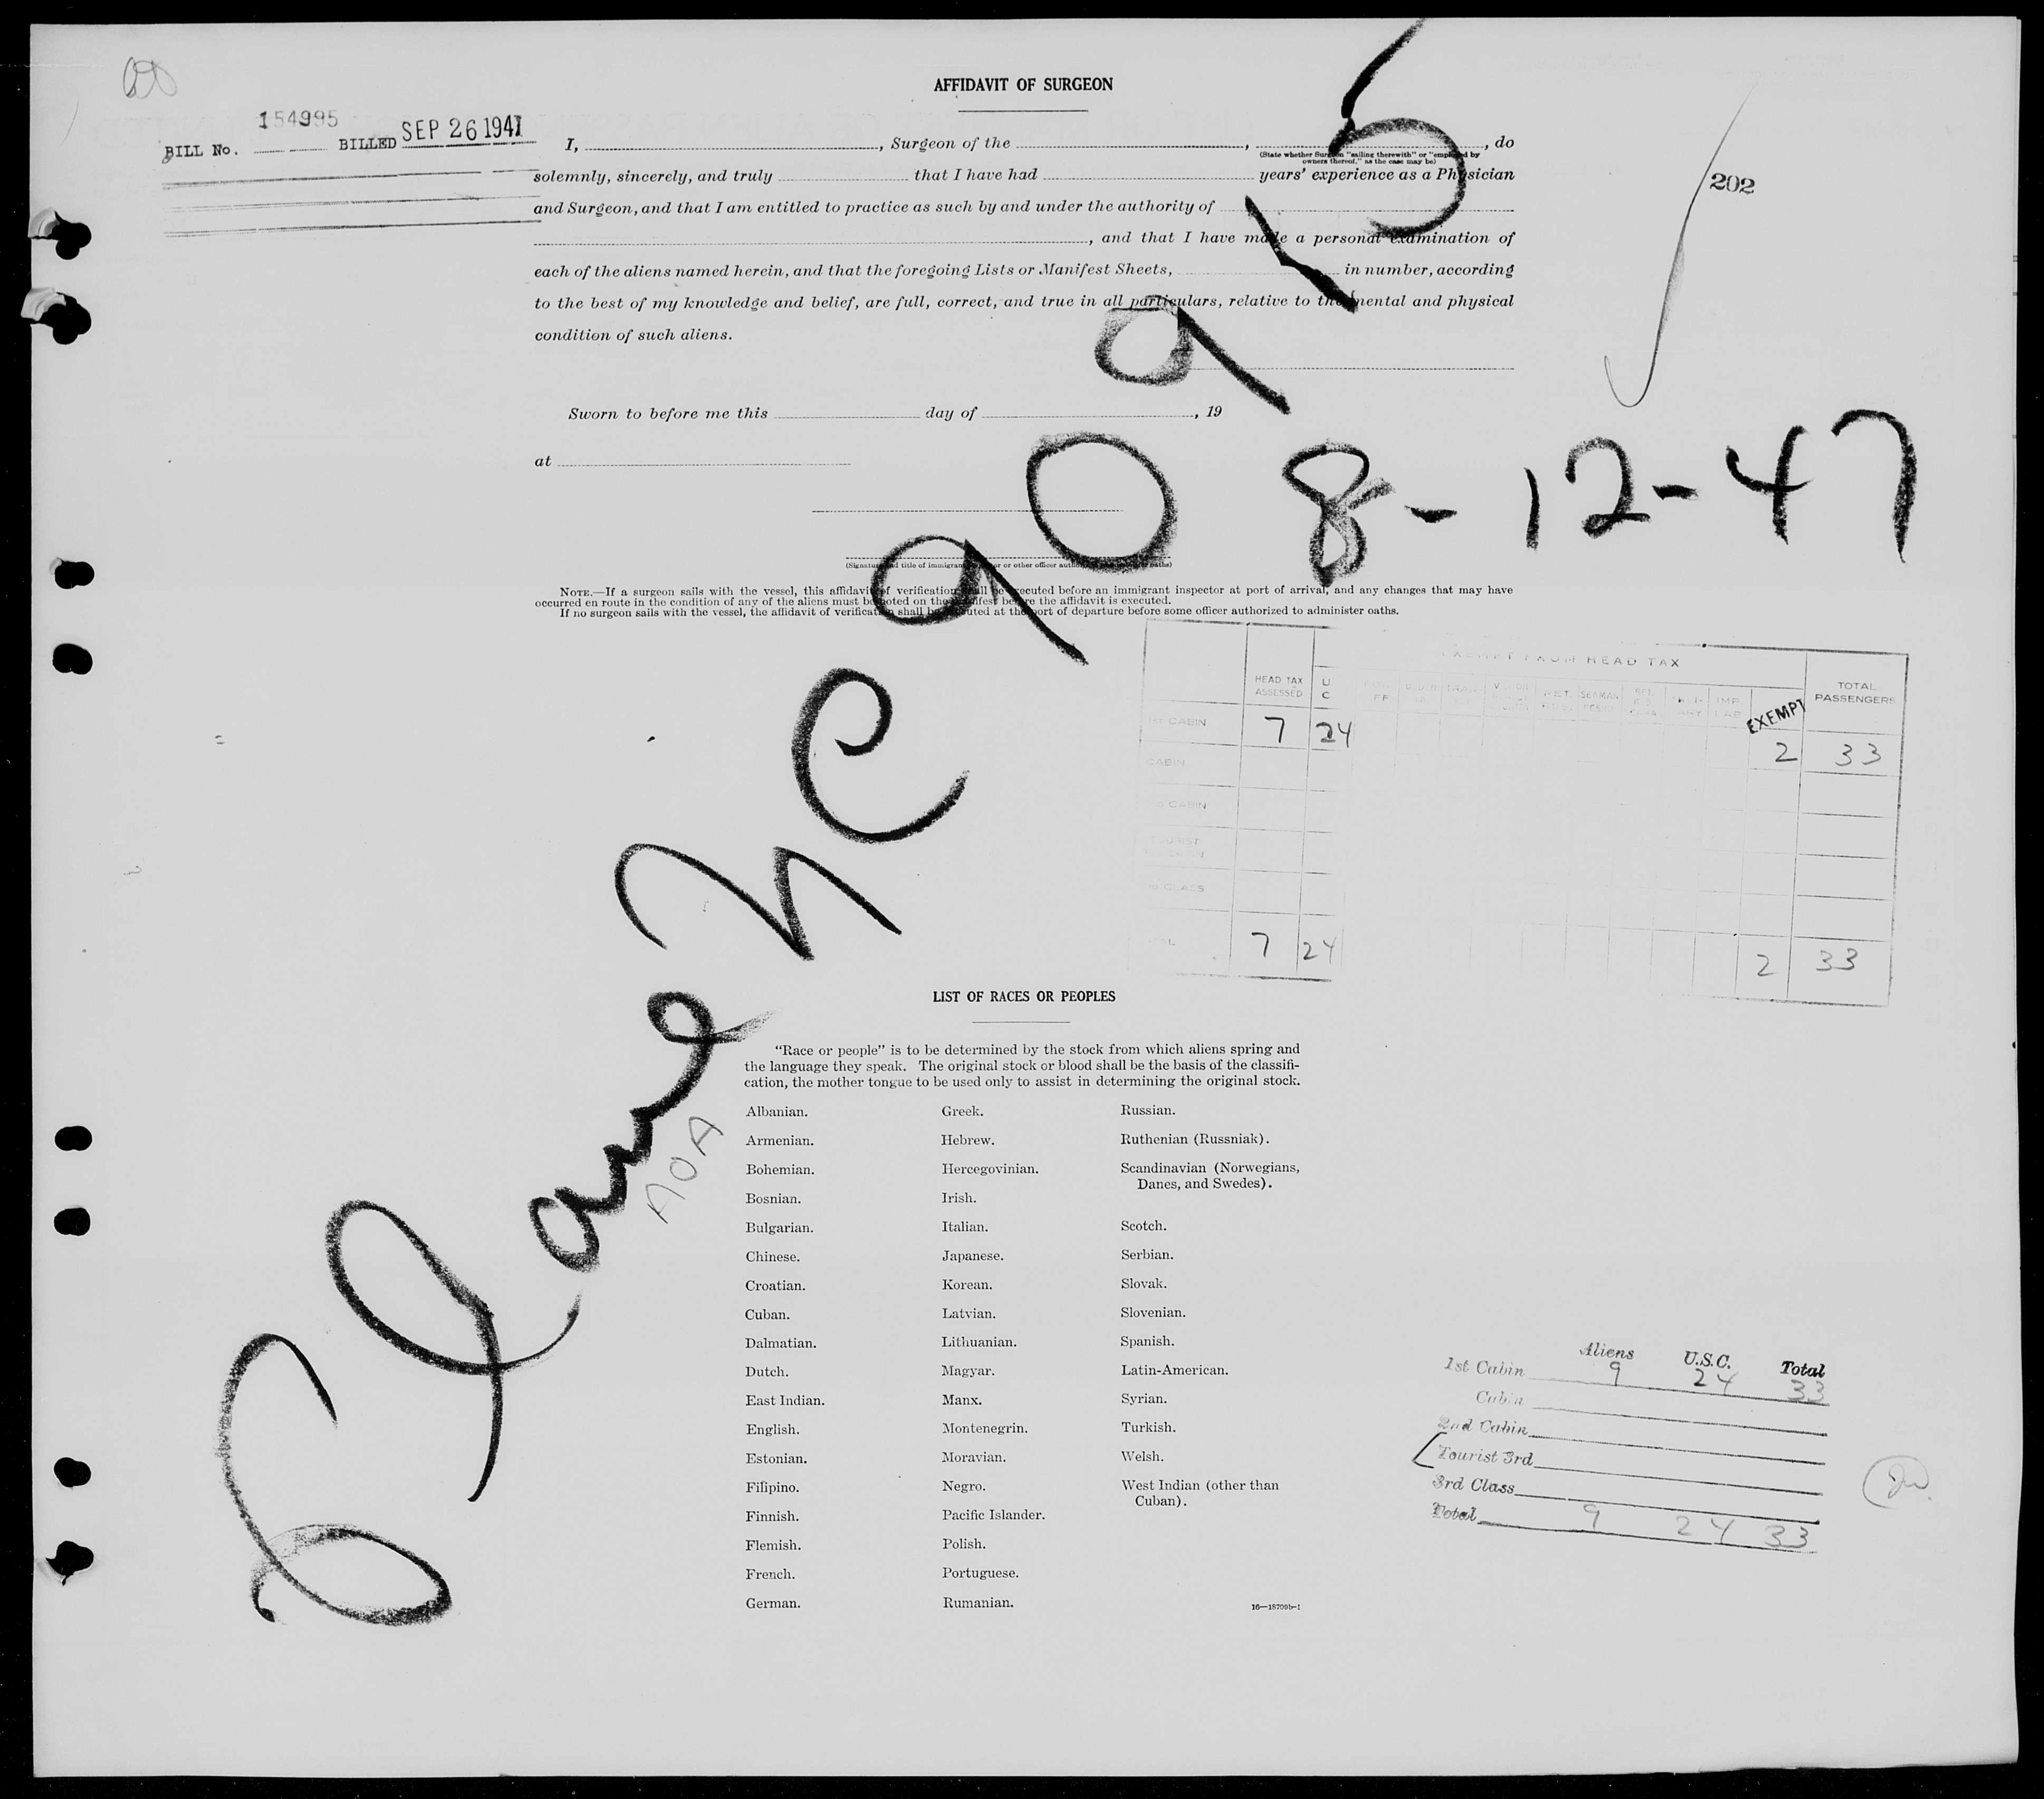 AFFIDAVIT OF SURGEON
154995
BILL No. BILLED SEP 26 1947
I, , Surgeon of the , , do
(State whether Surgeon "sailing therewith" or "employed by
owners thereof," as the case may be)
solemnly, sincerely, and truly that I have had years' experience as a Physician
202
and Surgeon, and that I am entitled to practice as such by and under the authority of
, and that I have made a personal examination of
each of the aliens named herein, and that the foregoing Lists or Manifest Sheets, in number, according
to the best of my knowledge and belief, are full, correct, and true in all particulars, relative to the mental and physical
condition of such aliens.
Sworn to before me this day of , 19
at
8-12-47
(Signature and title of immigrant inspector or other officer authorized to administer oaths)
NOTE.—If a surgeon sails with the vessel, this affidavit of verification shall be executed before an immigrant inspector at port of arrival, and any changes that may have
occurred en route in the condition of any of the aliens must be noted on the manifest before the affidavit is executed.
If no surgeon sails with the vessel, the affidavit of verification shall be executed at the port of departure before some officer authorized to administer oaths.
Plane NC 90915
AOA
EXEMPT FROM HEAD TAX
HEAD TAX ASSESSED U C EXEMPT TOTAL PASSENGERS
1ST CABIN 7 24 2 33
CABIN
CABIN
TOURIST
CLASS
TOTAL 7 24 2 33
LIST OF RACES OR PEOPLES
"Race or people" is to be determined by the stock from which aliens spring and
the language they speak. The original stock or blood shall be the basis of the classifi-
cation, the mother tongue to be used only to assist in determining the original stock.
Albanian. Greek. Russian.
Armenian. Hebrew. Ruthenian (Russniak).
Bohemian. Hercegovinian. Scandinavian (Norwegians,
Danes, and Swedes).
Bosnian. Irish.
Bulgarian. Italian. Scotch.
Chinese. Japanese. Serbian.
Croatian. Korean. Slovak.
Cuban. Latvian. Slovenian.
Dalmatian. Lithuanian. Spanish.
Dutch. Magyar. Latin-American.
East Indian. Manx. Syrian.
English. Montenegrin. Turkish.
Estonian. Moravian. Welsh.
Filipino. Negro. West Indian (other than
Cuban).
Finnish. Pacific Islander.
Flemish. Polish.
French. Portuguese.
German. Rumanian.
16—18709b-1
Aliens U.S.C. Total
1st Cabin 9 24 33
Cabin
2nd Cabin
Tourist 3rd
3rd Class
Total 9 24 33